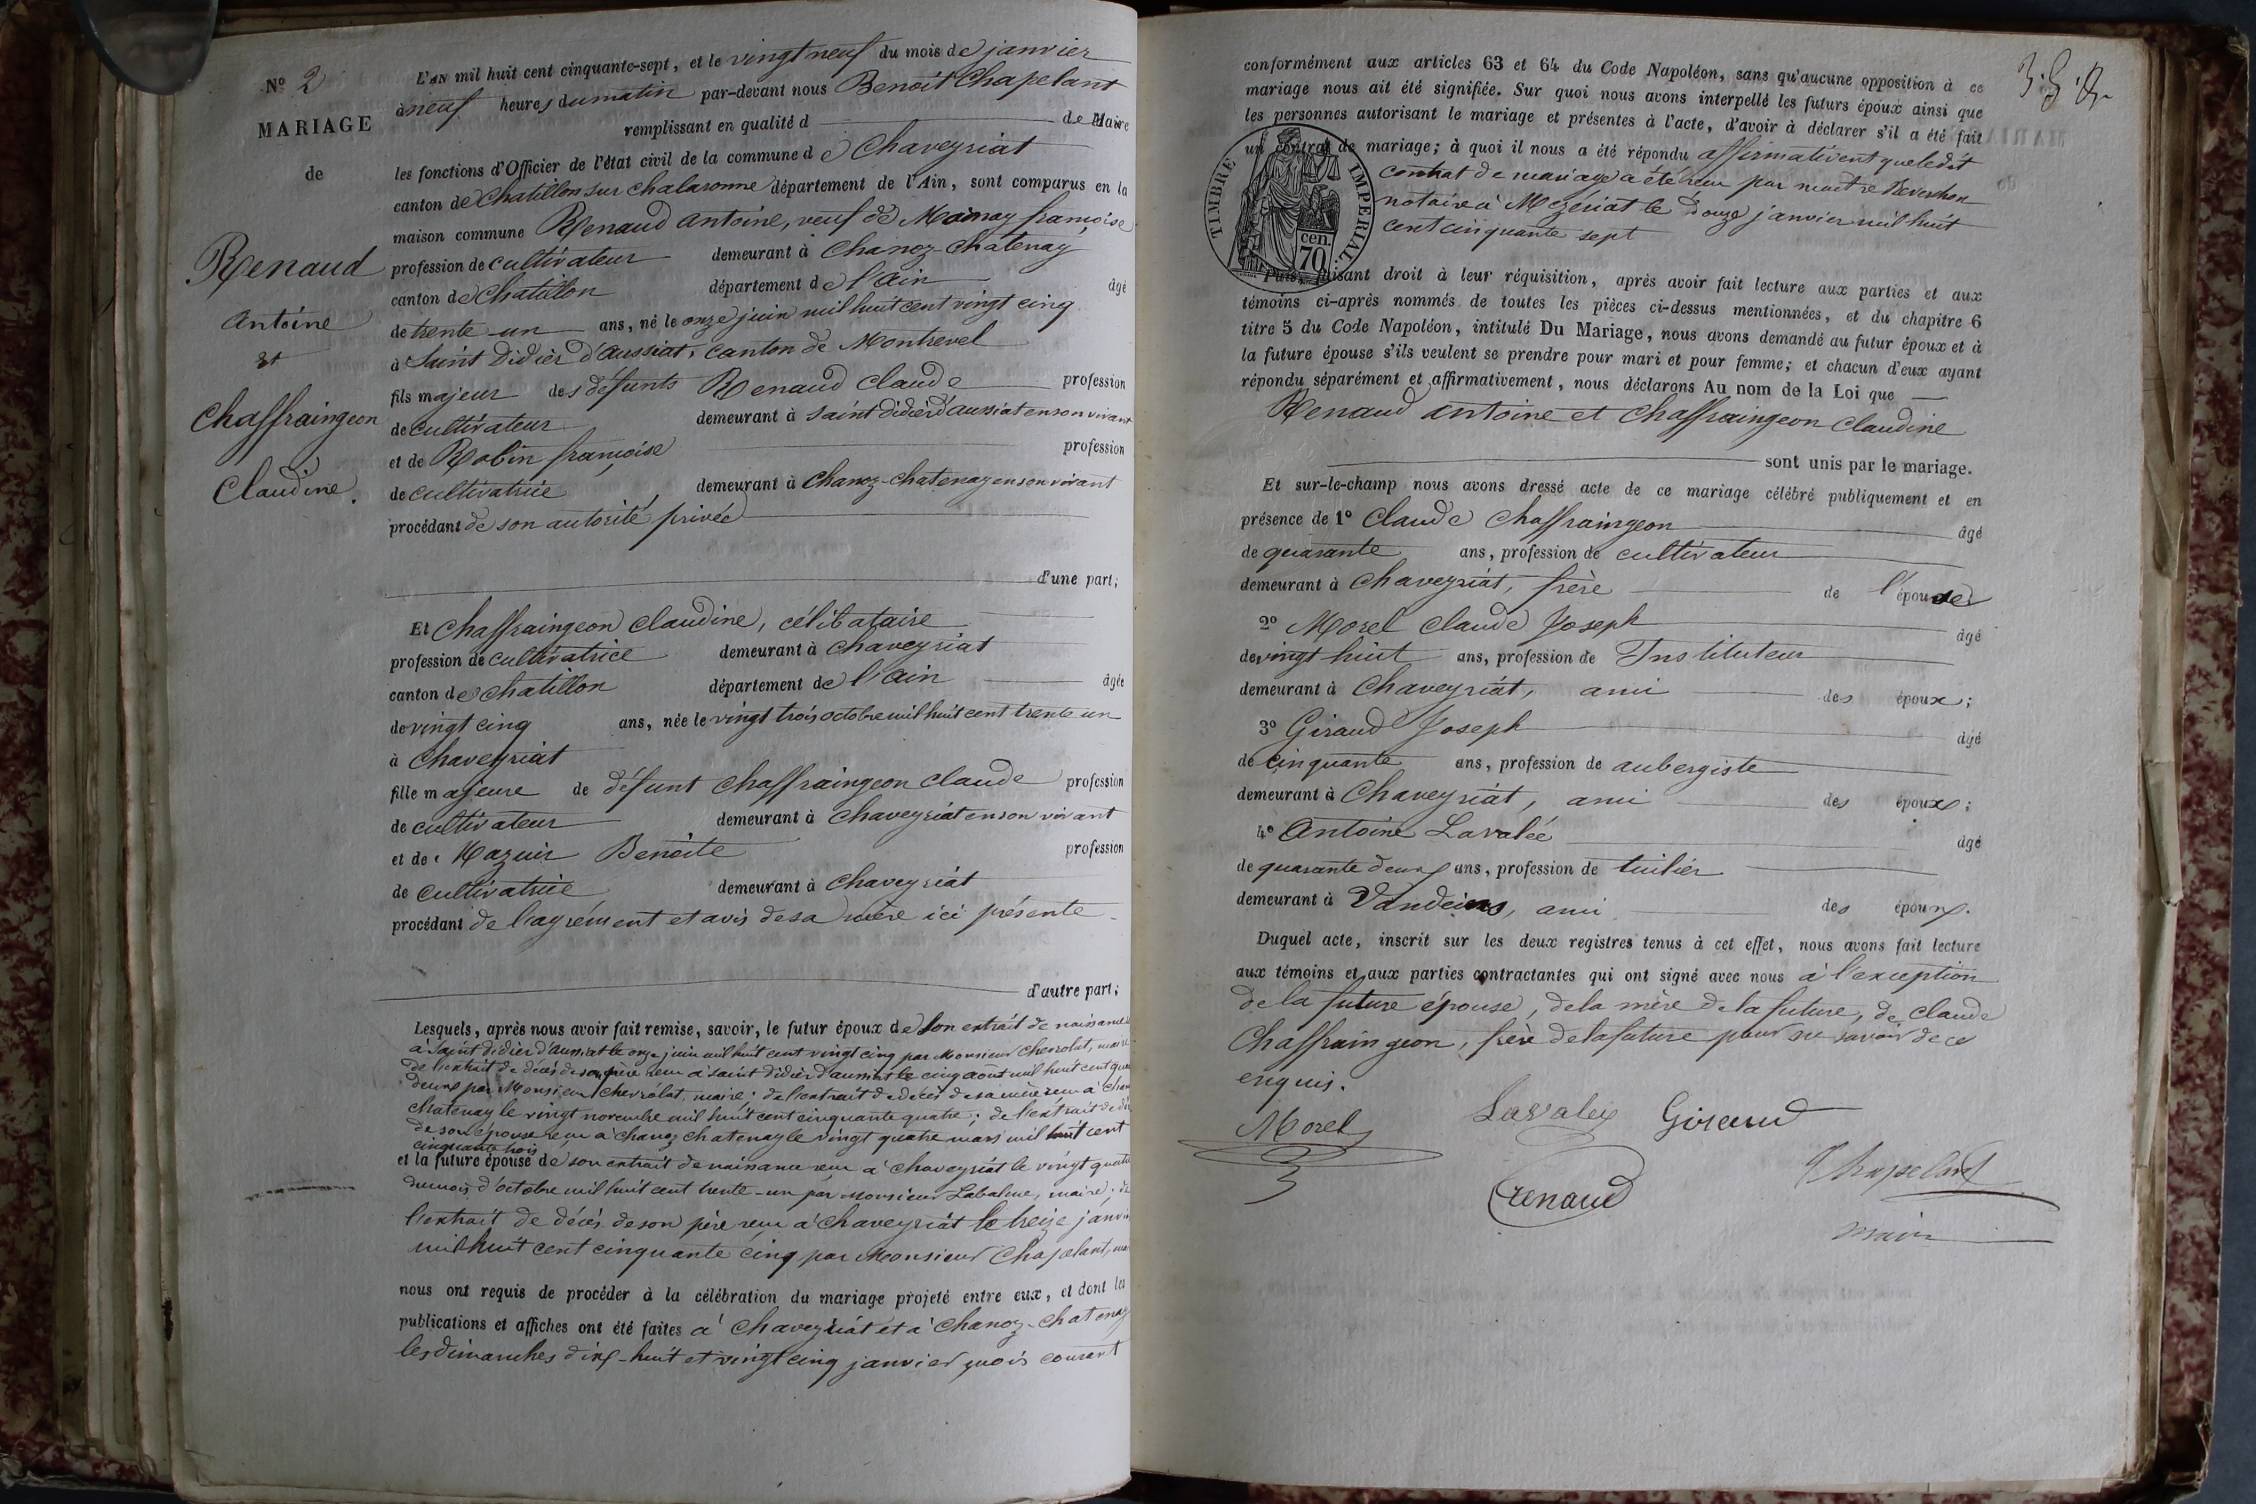 N° 2
MARIAGE
de
Renaud
Antoine
et
Chaffraingeon
Claudine.
L'AN mil huit cent cinquante-sept, et le vingt neuf du mois de janvier
à neuf heures du matin par-devant nous Benoit Chapelant
remplissant en qualité d de Maire
les fonctions d'Officier de l'état civil de la commune de Chaveyriat
canton de Chatillon sur Chalaronne département de l'Ain, sont comparus en la
maison commune Renaud Antoine, veuf de françoise
profession de cultivateur demeurant à Chanoz-Chatenay
canton de Chatillon département de l'Ain âgé
de trente-un ans, né le onze juin mil huit cent vingt cinq
à Saint Didier d'Aussiat, canton de Montrevel
fils majeur des défunts Renaud Claude profession
de cultivateur demeurant à saint didier d'aussiat en son vivant
et de Robin françoise profession
de cultivatrice demeurant à Chanoz-Chatenay en son vivant
procédant de son autorité privée
d'une part;
Et Chaffraingeon Claudine, célibataire
profession de cultivatrice demeurant à Chaveyriat
canton de Chatillon département de l'Ain âgée
de vingt cinq ans, née le vingt trois octobre mil huit cent trente un
à Chaveyriat
fille majeure de défunt Chaffraingeon Claude profession
de cultivateur demeurant à Chaveyriat en son vivant
et de Mazuir Benoîte profession
de cultivatrice demeurant à Chaveyriat
procédant de l'agrément et avis de sa mère ici présente
d'autre part;
Lesquels, après nous avoir fait remise, savoir, le futur époux de son extrait de naissance
à Saint didier d'aussiat le onze juin mil huit cent vingt cinq par Monsieur Chevrolat, maire
de l'extrait de décès de son père reçu à saint didier d'aussiat le cinq août mil huit cent
deux par Monsieur Chevrolat, maire; de l'extrait de décès de sa mère reçu à
Chatenay le vingt novembre mil huit cent cinquante quatre; de l'extrait de
de son épouse reçu à Chanoz Chatenay le vingt quatre mars mil huit cent
cinquante trois
et la future épouse de son extrait de naissance reçu à Chaveyriat le vingt quatre
du mois d'octobre mil huit cent trente-un par Monsieur Labalme, maire; de
l'extrait de décès de son père reçu à Chaveyriat le treize janvier
mil huit cent cinquante cinq par Monsieur Chapelant,
nous ont requis de procéder à la célébration du mariage projeté entre eux, et dont les
publications et affiches ont été faites à Chaveyriat et à Chanoz-Chatenay
les dimanches dix-huit et vingt cinq janvier mois courant
conformément aux articles 63 et 64 du Code Napoléon, sans qu'aucune opposition à ce
mariage nous ait été signifiée. Sur quoi nous avons interpellé les futurs époux ainsi que
les personnes autorisant le mariage et présentes à l'acte, d'avoir à déclarer s'il a été fait
un contrat de mariage; à quoi il nous a été répondu affirmativent que ledit
contrat de mariage a été reçu par maître Reverchon
notaire à Mezeriat le douze janvier mil huit
cent cinquante sept
TIMBRE IMPERIAL
70 cen.
Puis, faisant droit à leur réquisition, après avoir fait lecture aux parties et aux
témoins ci-après nommés de toutes les pièces ci-dessus mentionnées, et du chapitre 6
titre 5 du Code Napoléon, intitulé Du Mariage, nous avons demandé au futur époux et à
la future épouse s'ils veulent se prendre pour mari et pour femme; et chacun d'eux ayant
répondu séparément et affirmativement, nous déclarons Au nom de la Loi que
Renaud Antoine et Chaffraingeon Claudine
sont unis par le mariage.
Et sur-le-champ nous avons dressé acte de ce mariage célébré publiquement et en
présence de 1° Claude Chaffraingeon âgé
de quarante ans, profession de cultivateur
demeurant à Chaveyriat, frère de l'épouse
2° Morel Claude Joseph âgé
de vingt huit ans, profession de Instituteur
demeurant à Chaveyriat, ami des époux;
3° Giraud Joseph âgé
de cinquante ans, profession de aubergiste
demeurant à Chaveyriat, ami des époux;
4° Antoine Lavalée âgé
de quarante deux ans, profession de tuilier
demeurant à Vandeins, ami des époux.
Duquel acte, inscrit sur les deux registres tenus à cet effet, nous avons fait lecture
aux témoins et aux parties contractantes qui ont signé avec nous à l'exception
de la future épouse, de la mère de la future, de Claude
Chaffraingeon, frère de la future pour ne savoir de ce
enquis.
Morel Lavalex Giraud
Renaud Chapelant
maire